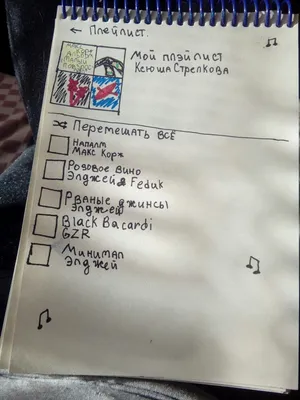 ← Плейлист.
Мой плэйлист
Ксюша Стрелкова
Перемешать всё
Напалм
Макс Корж
Розовое вино
Элджей & Feduk
Рваные джинсы
Элджей
Black Bacardi
GZR
Минимал
Элджей